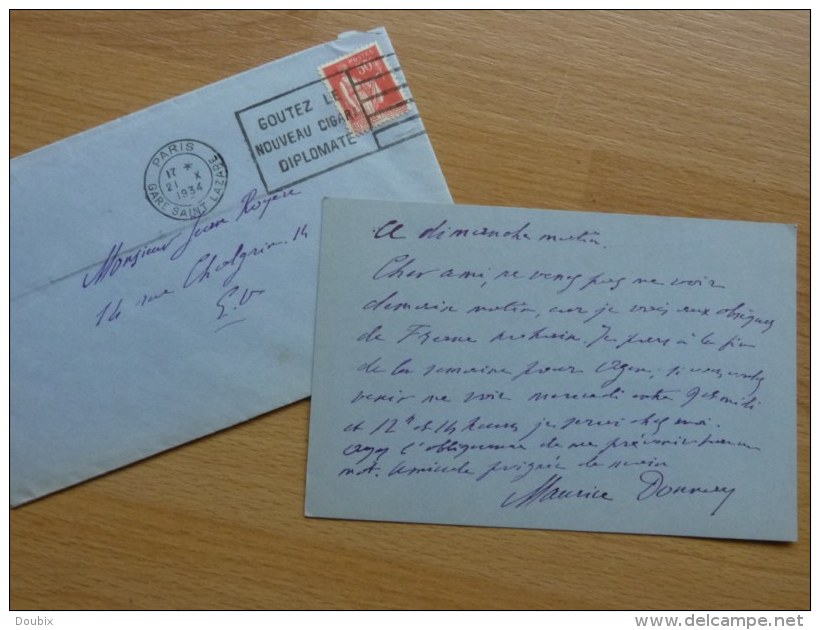 GOUTEZ LE
NOUVEAU CIGARE
DIPLOMATE
PARIS
17 *
21 X
1934
GARE SAINT LAZARE
50c
Monsieur Jean Royère
14 rue Chalgrin. 14
E.V
Ce dimanche matin.
Cher ami, ne venez pas me voir
demain matin, car je vais aux obsèques
de Franc Nohain. Je pars à la fin
de la semaine pour Agen, si vous voulez
venir me voir mercredi entre
et 12h et 14 heures je serai chez moi.
ayez l'obligeance de me prévenir d'un
mot. Amicale poignée de main
Maurice Donnay
Doubix
www.delcampe.net